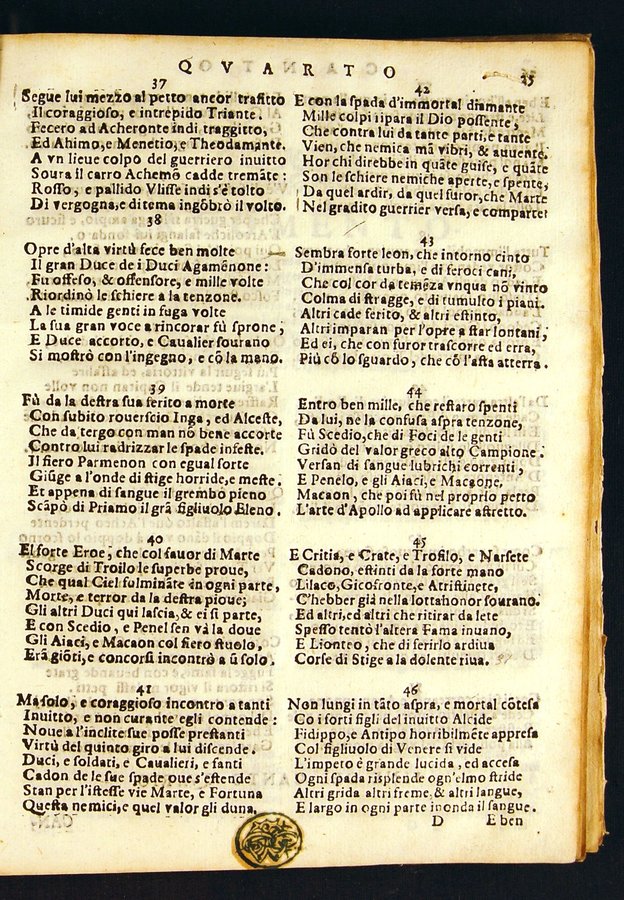 QVARTO
25
37
Segue lui mezzo al petto ancor trafitto
Il coraggioso, e intrepido Triante.
Fecero ad Acheronte indi traggitto,
Ed Ahimo, e Menetio, e Theodamante.
A vn lieue colpo del guerriero inuitto
Soura il carro Achemō cadde tremāte:
Rosso, e pallido Vlisse indi s'è tolto
Di vergogna, e di tema ingōbrò il volto.
38
Opre d'alta virtù fece ben molte
Il gran Duce de i Duci Agamēnone:
Fu offeso, & offensore, e mille volte
Riordinò le schiere a la tenzone.
A le timide genti in fuga volte
La sua gran voce a rincorar fù sprone,
E Duce accorto, e Caualier sourano
Si mostrò con l'ingegno, e cō la mano.
39
Fù da la destra sua ferito a morte
Con subito rouerscio Inga, ed Alceste,
Che da tergo con man nō bene accorte
Contro lui radrizzar le spade infeste.
Il fiero Parmenon con egual sorte
Giūge a l'onde di stige horride, e meste.
Et appena di sangue il grembo pieno
Scāpò di Priamo il grā figliuolo Eleno.
40
El forte Eroe, che col fauor di Marte
Scorge di Troilo le superbe proue,
Che qual Ciel fulmināte in ogni parte,
Morte, e terror da la destra pioue;
Gli altri Duci qui lascia, & ei si parte,
E con Scedio, e Penel sen và la doue
Gli Aiaci, e Macaon col fiero stuolo,
Erā giōti, e concorsi incontrò a ū solo.
41
Ma solo, e coraggioso incontro a tanti
Inuitto, e non curante egli contende:
Noue a l'inclite sue posse prestanti
Virtù del quinto giro a lui discende.
Duci, e soldati, e Caualieri, e fanti
Cadon de le sue spade oue s'estende
Stan per l'istesse vie Marte, e Fortuna
Questa nemici, e quel valor gli duna.
42
E con la spada d'immortal diamante
Mille colpi ripara il Dio possente,
Che contra lui da tante parti, e tante
Vien, che nemica mā vibri, & auuente.
Hor chi direbbe in quāte guise, e quāte
Son le schiere nemiche aperte, e spente,
Da quel ardir, da quel furor, che Marte
Nel gradito guerrier versa, e comparte?
43
Sembra forte leon, che intorno cinto
D'immensa turba, e di feroci cani,
Che col cor da temēza vnqua nō vinto
Colma di stragge, e di tumulto i piani.
Altri cade ferito, & altri estinto,
Altri imparan per l'opre a star lontani,
Ed ei, che con furor trascorre ed erra,
Più cō lo sguardo, che cō l'asta atterra.
44
Entro ben mille, che restaro spenti
Da lui, ne la confusa aspra tenzone,
Fù Scedio, che di Foci de le genti
Gridò del valor greco alto Campione.
Versan di sangue lubrichi correnti,
E Penelo, e gli Aiaci, e Macaone,
Macaon, che poi fù nel proprio petto
L'arte d'Apollo ad applicare astretto.
45
E Critia, e Crate, e Trofilo, e Narsete
Cadono, estinti da la forte mano
Lilaco, Gicofronte, e Atristinete,
C'hebber già nella lotta honor sourano.
Ed altri, ed altri che ritirar da lete
Spesso tentò l'altera Fama inuano,
E Lionteo, che di ferirlo ardiua
Corse di Stige a la dolente riua. 37
46
Non lungi in tāto aspra, e mortal cōtesa
Co i forti figli del inuitto Alcide
Fidippo, e Antipo horribilmēte appresa
Col figliuolo di Venere si vide
L'impeto è grande lucida, ed accesa
Ogni spada risplende ogn'elmo stride
Altri grida altri freme, & altri langue,
E largo in ogni parte inonda il sangue.
D
E ben